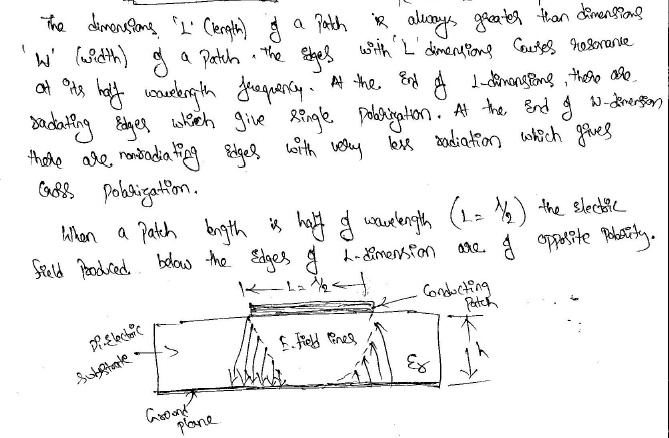 The dimensions, 'L' (length) of a Patch is always greater than dimensions
'W' (width) of a Patch. The edges with 'L' dimensions Causes resonance
at its half wavelength frequency. At the End of L-dimensions, there are
radiating Edges which give Single Polarization. At the End of W-dimension
there are nonradiating Edges with very less radiation which gives
Cross Polarization.
When a Patch length is half of wavelength (L = λ/2) the Electric
field Produced below the Edges of L-dimension are of opposite Polarity.
L = λ/2
Conducting
Patch
Di-Electric
Substrate
E-field lines
εr
h
Ground
plane